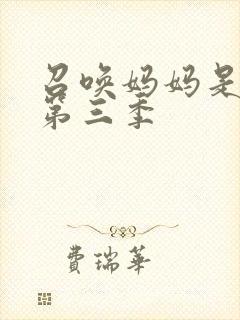 召唤妈妈是
第三季
费瑞华